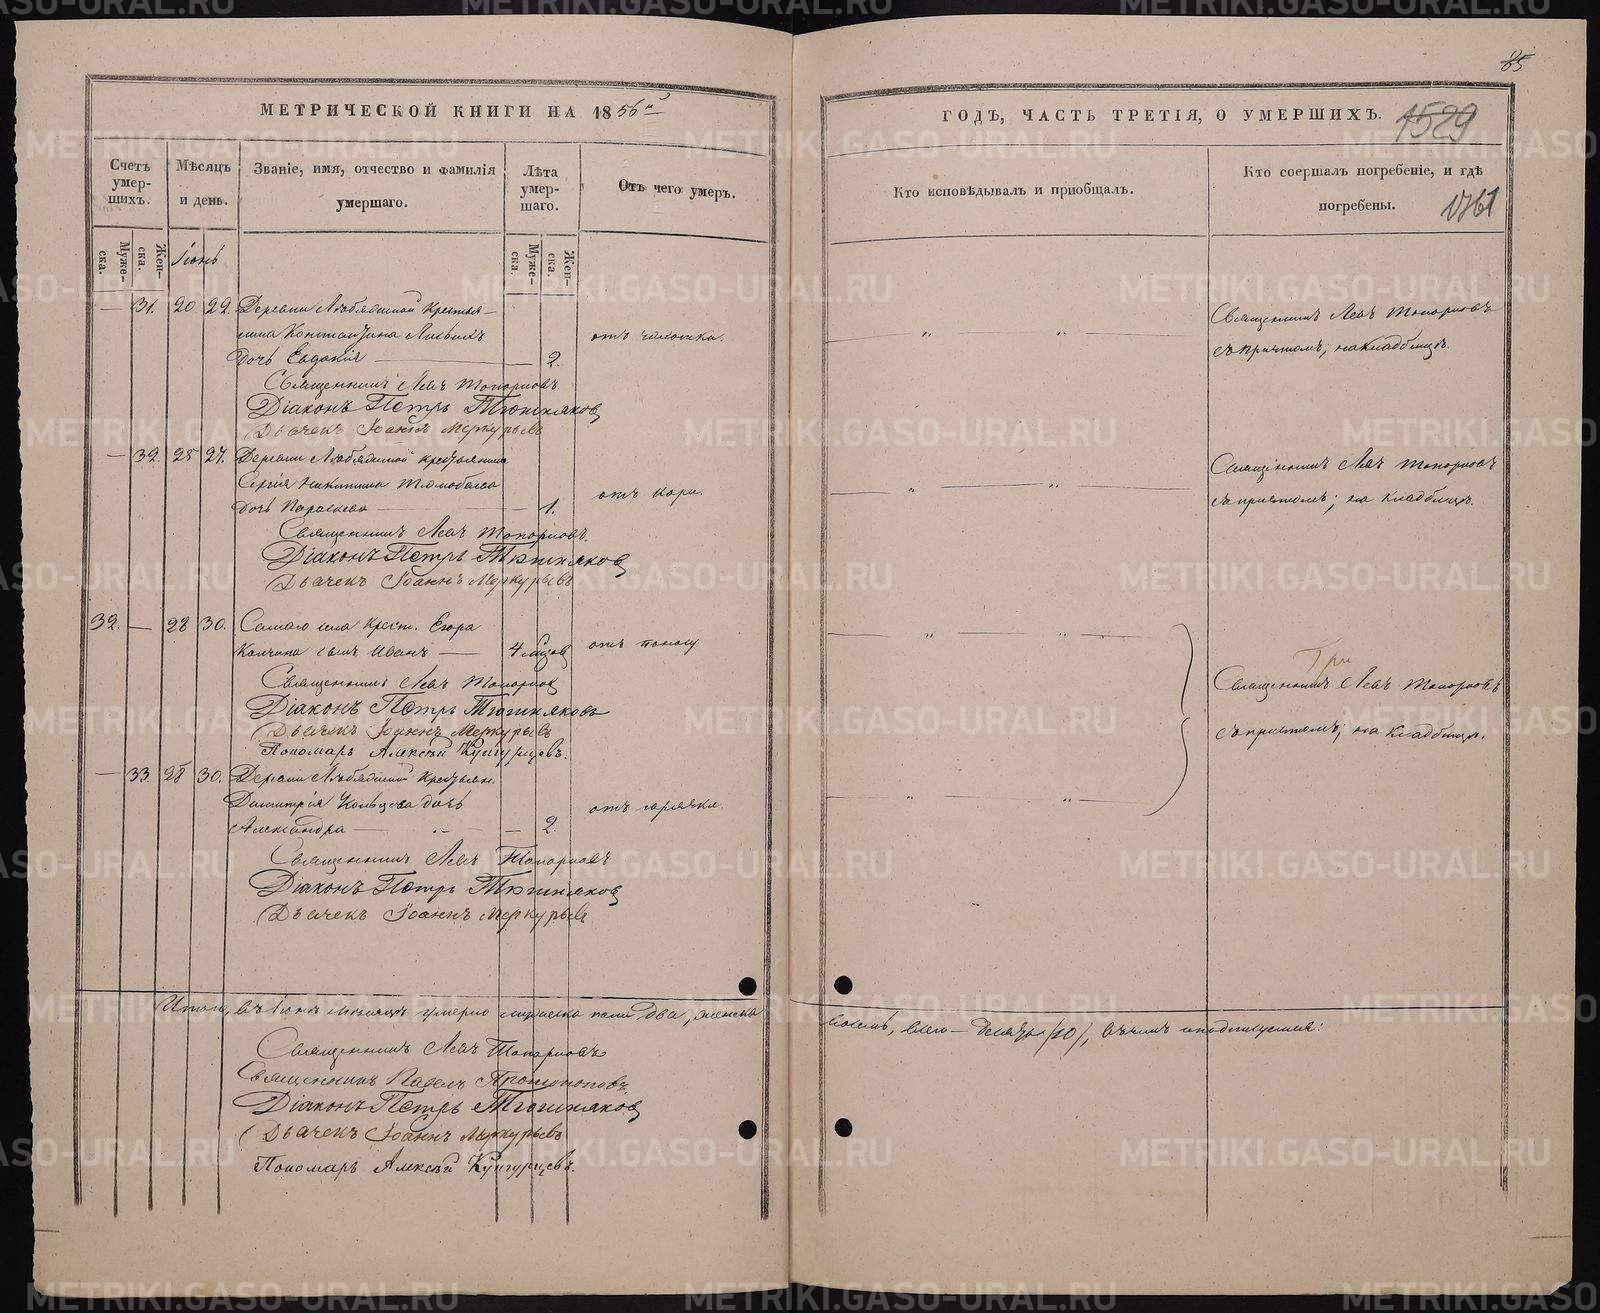 85
МЕТРИЧЕСКОЙ КНИГИ НА 1856й
ГОДЪ, ЧАСТЬ ТРЕТІЯ, О УМЕРШИХЪ.
1529
1761
Счетъ умер-шихъ.
Мѣсяцъ и день.
Званіе, имя, отчество и фамилія умершаго.
Лѣта умер-шаго.
Отъ чего умеръ.
Кто исповѣдывалъ и пріобщалъ.
Кто соершалъ погребеніе, и гдѣ погребены.
Муже-ска.
Жен-ска.
Іюнь
Муже-ска.
Жен-ска.
— 31. 20 22. Деревни крестья-
нина
Дочь Евдокія — 2.
Священникъ Левъ Топорковъ
съ причтомъ; на кладбищѣ.
Священникъ Левъ Топорковъ
Діаконъ Петръ Тюшняковъ
Дьячекъ Іоаннъ Меркурьевъ
— 32. 25 27. Деревни крестьянина
Сергія Никитина
дочь Параскева — 1.
отъ кори.
Священникъ Левъ Топорковъ
съ причтомъ; на кладбищѣ.
Священникъ Левъ Топорковъ.
Діаконъ Петръ Тюшняковъ
Дьячекъ Іоаннъ Меркурьевъ
32. — 28 30. Самаго села крест. Егора
Колчина сынъ Иванъ — 4 мѣсяц
отъ поносу
Три
Священникъ Левъ Топорковъ
съ причтомъ; на кладбищѣ.
Священникъ Левъ Топорков
Діаконъ Петръ Тюшняковъ
Дьячекъ Іоаннъ Меркурьевъ
Пономарь Алексѣй Кунгурцевъ.
— 33. 28 30. Деревни крестьян.
Димитрія Кольцова дочь
Александра — — 2.
отъ горячки.
Священникъ Левъ Топорковъ
Діаконъ Петръ Тюшняковъ
Дьячекъ Іоаннъ Меркурьевъ
Итого, въ Іюнѣ мѣсяцѣ умерло мужеска пола два, женска
восемь, всего — десять (10), въ чемъ и подписуемся:
Священникъ Левъ Топорковъ
Священникъ Павелъ Протопоповъ.
Діаконъ Петръ Тюшняковъ
Дьячекъ Іоаннъ Меркурьевъ
Пономарь Алексѣй Кунгурцевъ.
METRIKI.GASO-URAL.RU